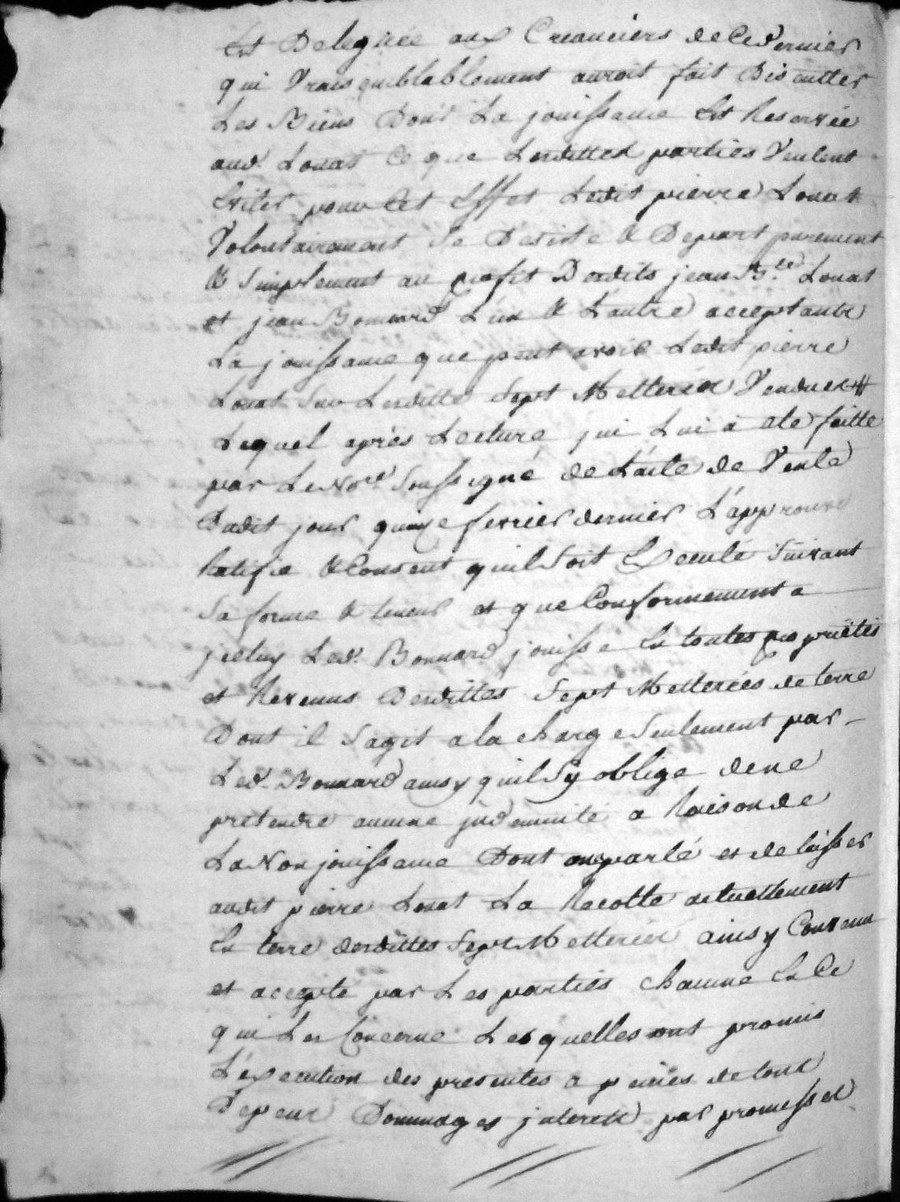 Est Deleguée aux Creanciers de Ce dernier
qui Vraisemblablement auroit fait Discutter
Les Biens Dont La jouissance Est Reservée
aud. Louat Ce que Lesdittes parties Veulent
Eviter pour Cet Effet Ledit pierre Louat
Volontairement Se Desiste & Depart purement
& Simplement au profit Desdits jean Bte Louat
et jean Bonnard L'un & L'autre acceptants
La jouissance que peut avoir Ledit pierre
Louat Sur Lesdittes Sept Metterées Vendues #
Lequel après Lecture qui Lui à ete faitte
par Le Nore Soussigné de L'acte de Vente
Dudit jour quinze fevrier dernier L'approuve
Ratifie & Consent quil Soit Execute Suivant
Sa forme & teneur et que Conformement a
jceluy Led. Bonnard jouisse En toutes proprietés
et Revenus Desdittes Sept Metterées de terre
Dont il S'agit a la charge Seulement par
Led. Bonnard ainsy quil Sy oblige de ne
pretendre aucune jndemnité a Raison de
La Non jouissance Dont on a parlé et de laisser
audit pierre Louat La Recolte actuellement
En terre desdittes Sept Metterées ainsy Convenu
et accepté par Les parties Chacune En Ce
qui Les Concerne Lesquelles ont promis
L'execution des presentes a peines de tous
Depens Dommages jnterets par promesses